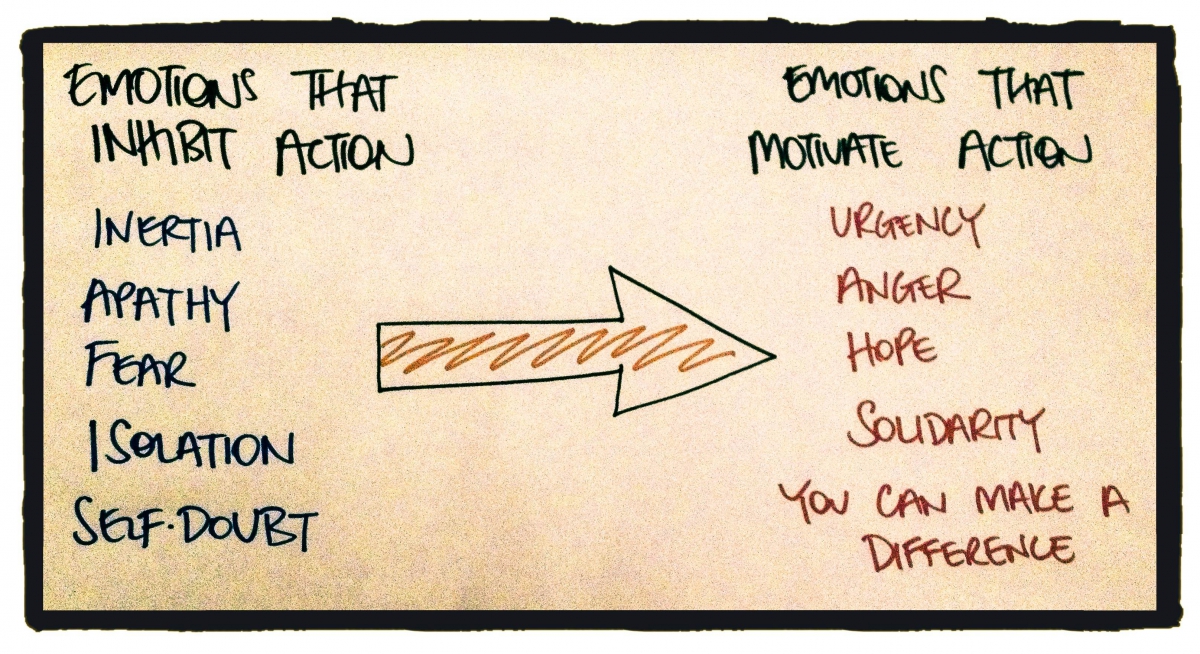 EMOTIONS THAT
INHIBIT ACTION
INERTIA
APATHY
FEAR
ISOLATION
SELF-DOUBT
EMOTIONS THAT
MOTIVATE ACTION
URGENCY
ANGER
HOPE
SOLIDARITY
YOU CAN MAKE A
DIFFERENCE